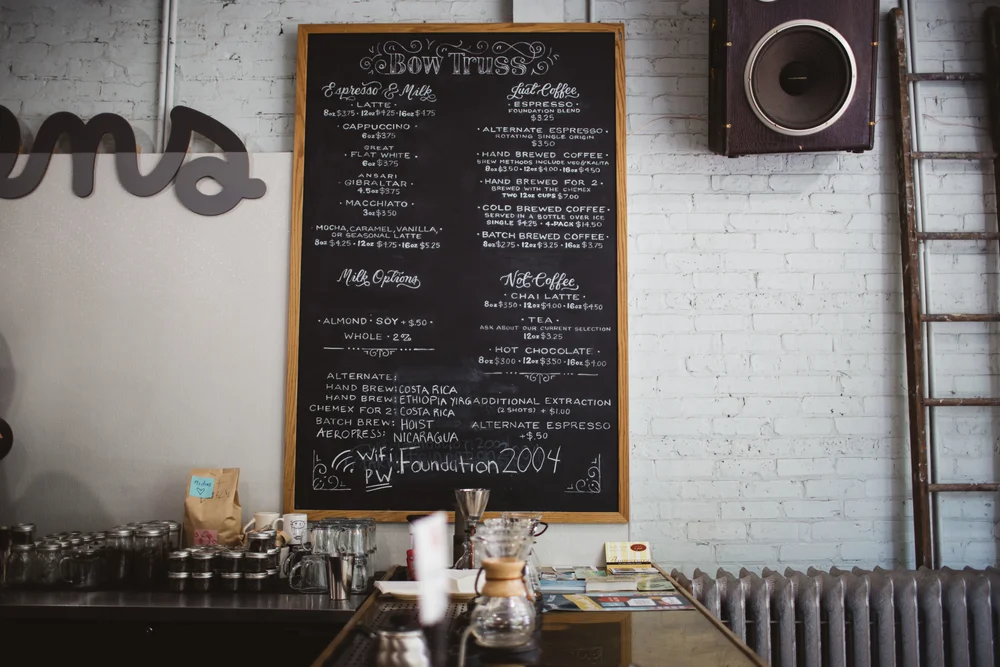 Bow Truss
Espresso & Milk
· LATTE ·
8oz $3.75 · 12oz $4.25 · 16oz $4.75
· CAPPUCCINO ·
6oz $3.75
GREAT
· FLAT WHITE ·
6oz $3.75
ANSARI
· GIBRALTAR ·
4.5oz $3.75
· MACCHIATO ·
3oz $3.50
· MOCHA, CARAMEL, VANILLA, ·
OR SEASONAL LATTE
8oz $4.25 · 12oz $4.75 · 16oz $5.25
Milk Options
· ALMOND · SOY + $.50 ·
WHOLE · 2%
Just Coffee
· ESPRESSO ·
FOUNDATION BLEND
$3.25
· ALTERNATE ESPRESSO ·
ROTATING SINGLE ORIGIN
$3.50
· HAND BREWED COFFEE ·
BREW METHODS INCLUDE V60/KALITA
8oz $3.50 · 12oz $4.00 · 16oz $4.50
· HAND BREWED FOR 2 ·
BREWED WITH THE CHEMEX
TWO 12oz CUPS $7.00
· COLD BREWED COFFEE ·
SERVED IN A BOTTLE OVER ICE
SINGLE $4.25 · 4-PACK $14.50
· BATCH BREWED COFFEE ·
8oz $2.75 · 12oz $3.25 · 16oz $3.75
Not Coffee
· CHAI LATTE ·
8oz $3.50 · 12oz $4.00 · 16oz $4.50
· TEA ·
ASK ABOUT OUR CURRENT SELECTION
12oz $3.25
· HOT CHOCOLATE ·
8oz $3.00 · 12oz $3.50 · 16oz $4.00
ALTERNATE:
HAND BREW: COSTA RICA
HAND BREW: ETHIOPIA YIRG
CHEMEX FOR 2: COSTA RICA
BATCH BREW: HOIST
AEROPRESS: NICARAGUA
ADDITIONAL EXTRACTION
(2 SHOTS) + $1.00
ALTERNATE ESPRESSO
+$.50
Wifi
PW: Foundation2004